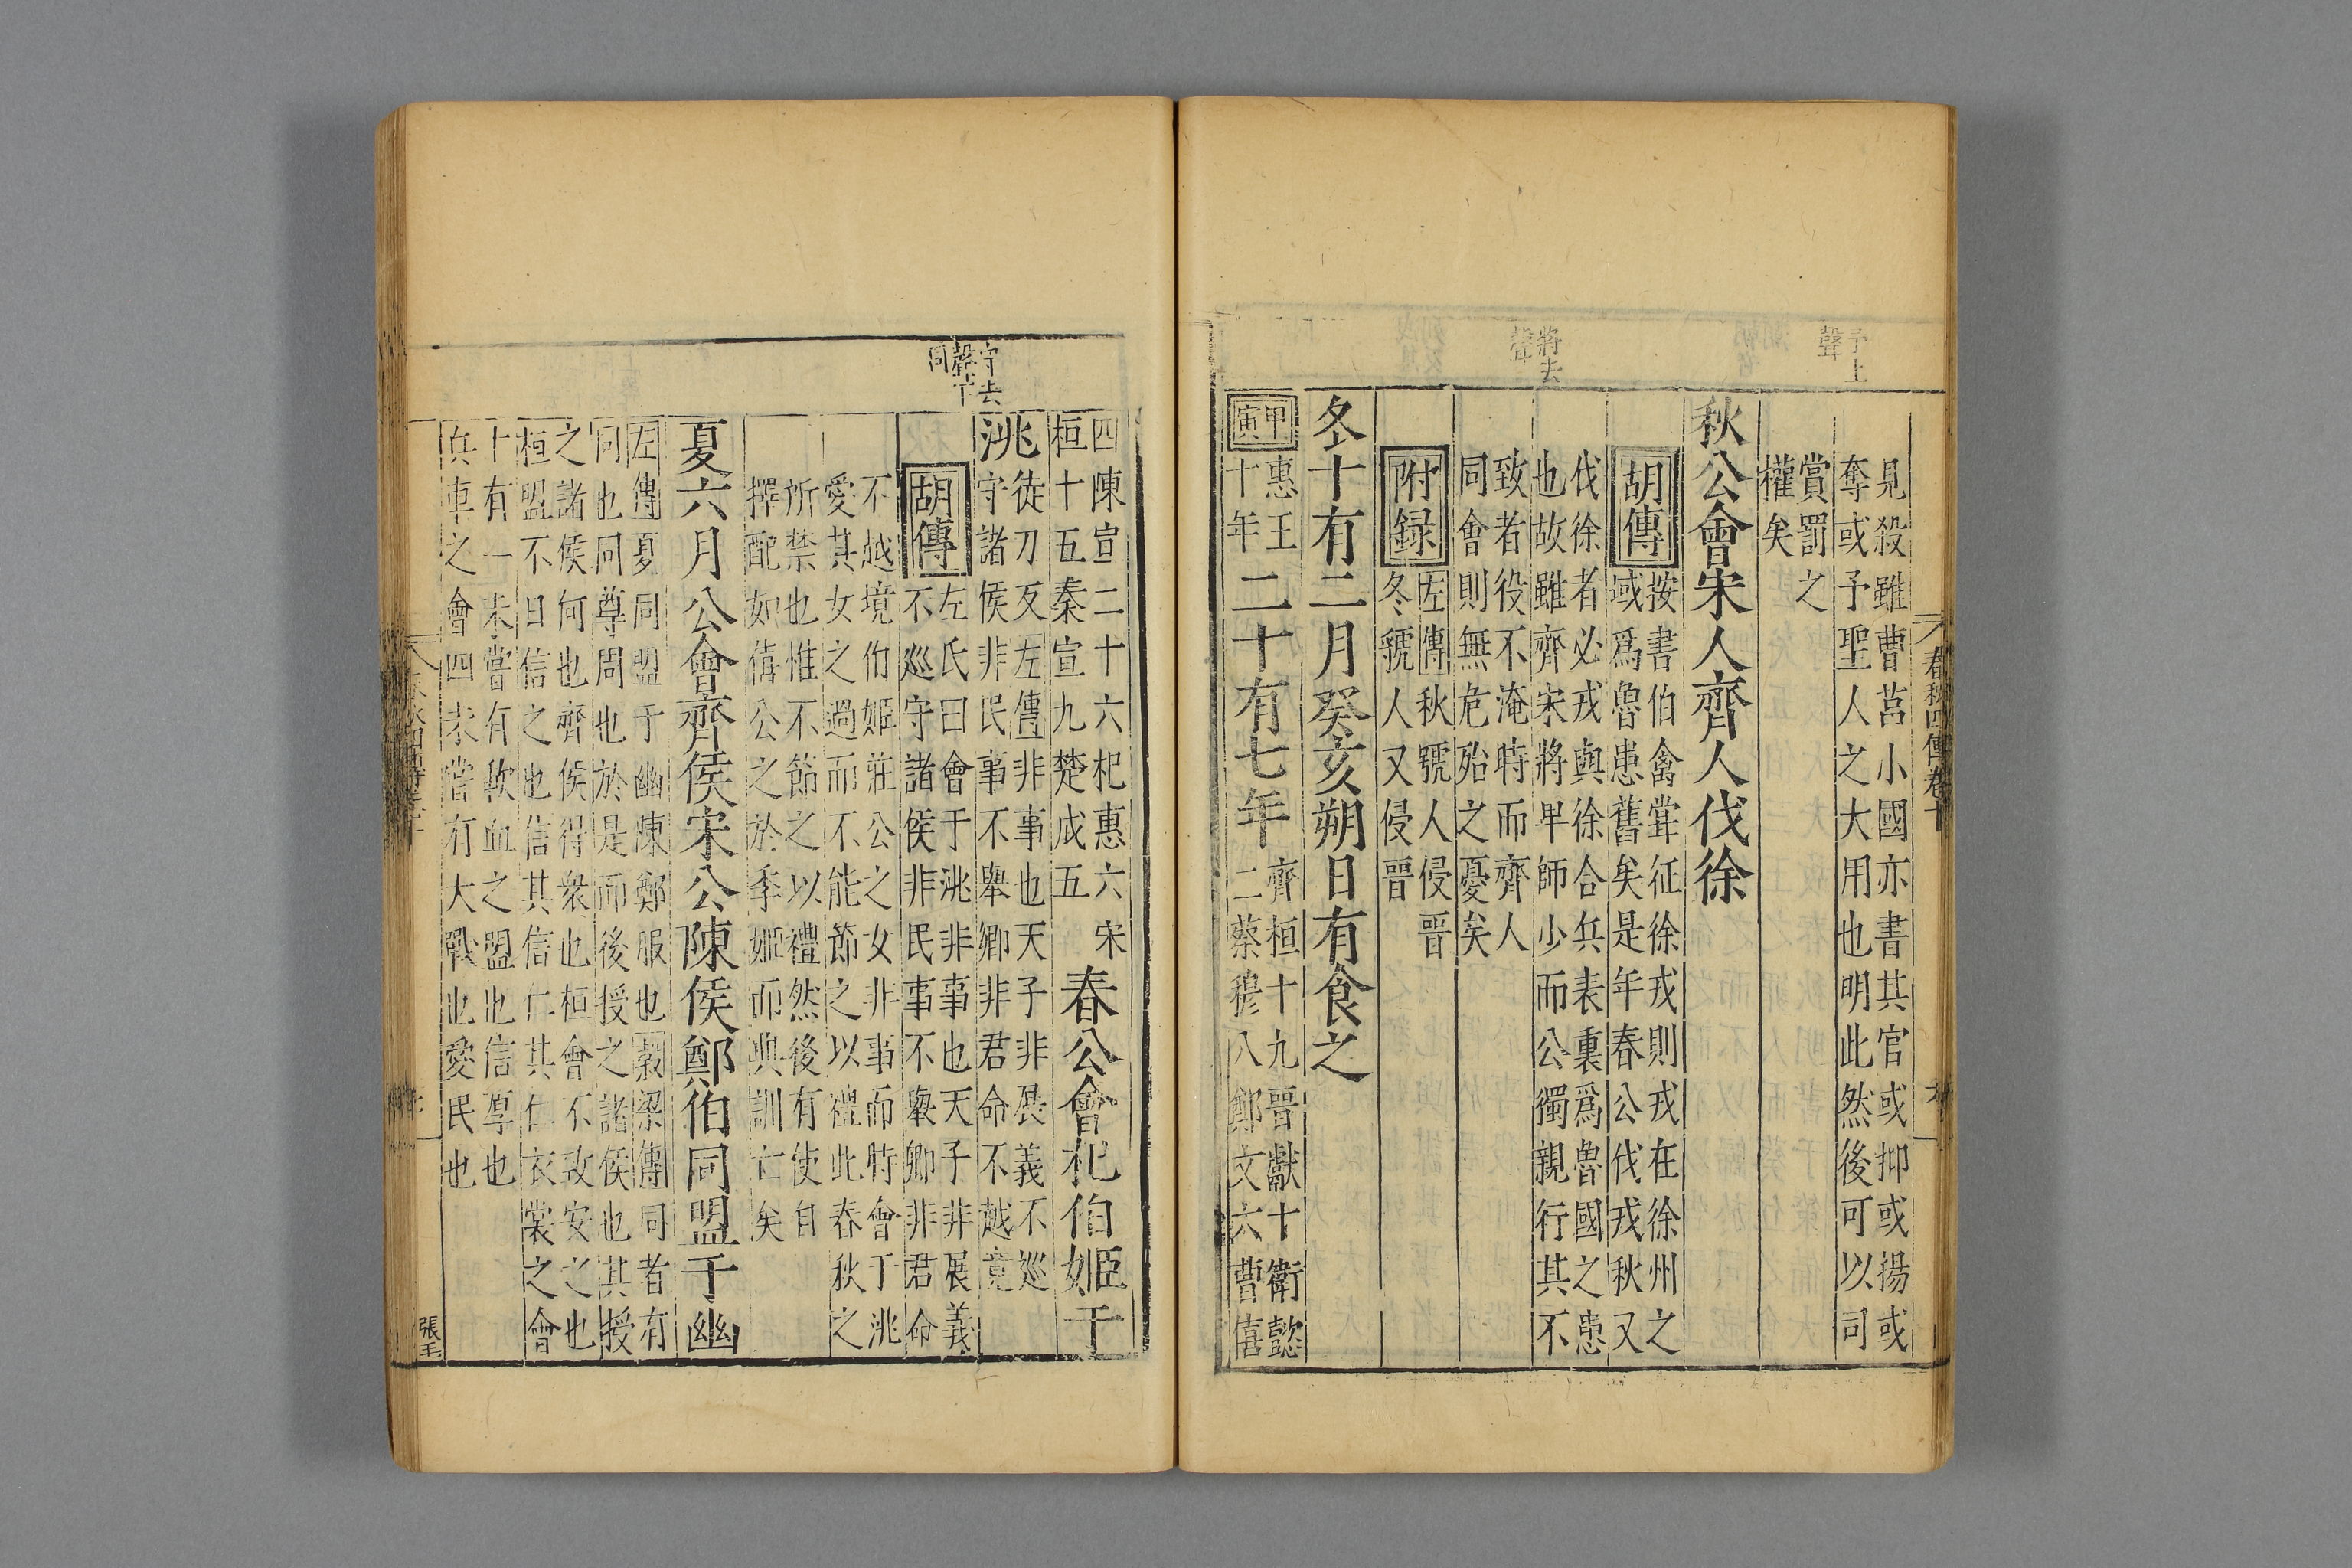 予上
聲
將去
聲
見殺雖曹莒小國亦書其官或抑或揚或
奪或予聖人之大用也明此然後可以司
賞罰之
權矣
秋公會宋人齊人伐徐
胡傳
按書伯禽甞征徐戎則戎在徐州之
域爲魯患舊矣是年春公伐戎秋又
伐徐者必戎與徐合兵表裏爲魯國之患
也故雖齊宋將甲師少而公獨親行其不
致者役不淹時而齊人
同會則無危殆之憂矣
附録
左傳秋虢人侵晉
冬虢人又侵晉
冬十有二月癸亥朔日有食之
甲寅
惠王
十年
二十有七年
齊桓十九晉獻十衛懿
二蔡穆八鄭文六曹僖
春秋四傳卷十
守去
聲下
同
四陳宣二十六杞惠六宋
桓十五秦宣九楚成五
春公會杞伯姬于
洮
徒刀反左傳非事也天子非展義不巡
守諸侯非民事不舉卿非君命不越竟
胡傳
左氏曰會于洮非事也天子非展義
不巡守諸侯非民事不舉卿非君命
不越境伯姬莊公之女非事而特會于洮
愛其女之過而不能節之以禮此春秋之
所禁也惟不節之以禮然後有使自
擇配如僖公之於季姬而典訓亡矣
夏六月公會齊侯宋公陳侯鄭伯同盟于幽
左傳夏同盟于幽陳鄭服也穀梁傳同者有
同也同尊周也於是而後授之諸侯也其授
之諸侯何也齊侯得衆也桓會不致安之也
桓盟不日信之也信其信仁其仁衣裳之會
十有一未嘗有歃血之盟也信厚也
兵車之會四未嘗有大戰也愛民也
張王